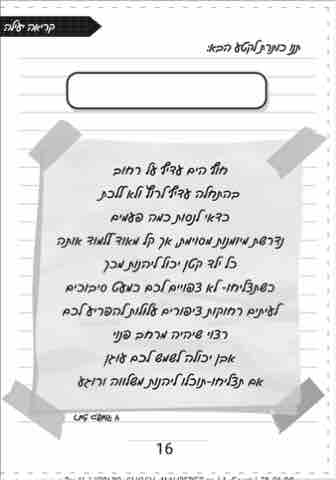 קריאה יעילה
תנו כותרת לקטע הבא:
חוף הים עדיף על רחוב
בהתחלה עדיף לרוץ ולא ללכת
כדאי לנסות כמה פעמים
נדרשת מיומנות מסוימת, אך קל מאוד ללמוד אותה
כל ילד קטן יכול ליהנות מכך
כשתצליחו- לא צפויים לכם כמעט סיבוכים
לעיתים רחוקות ציפורים עלולות להפריע לכם
רצוי שיהיה מרחב פנוי
אבן יכולה לשמש לכם עוגן
אם תצליחו-תוכלו ליהנות משלווה ורוגע
16